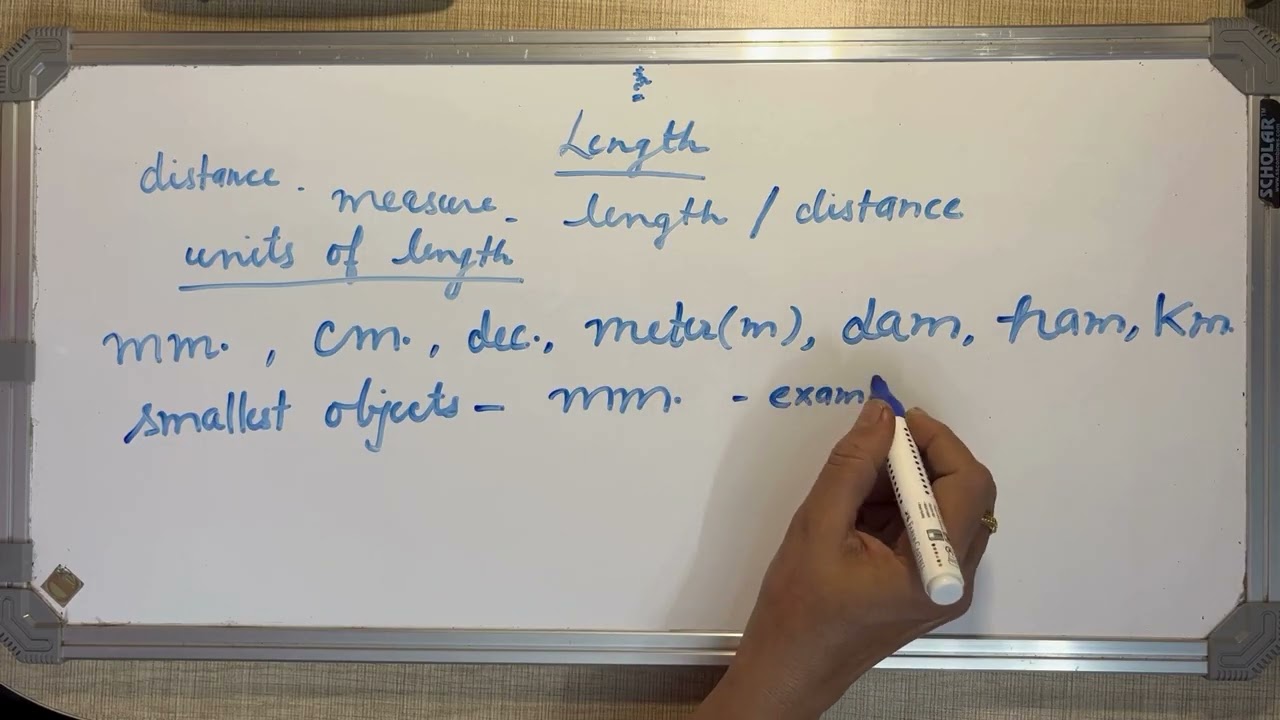 Length
distance. measure. length / distance
units of length
mm., cm., dec., meter(m), dam, ham, Km.
smallest objects - mm. - exam
SCHOLAR